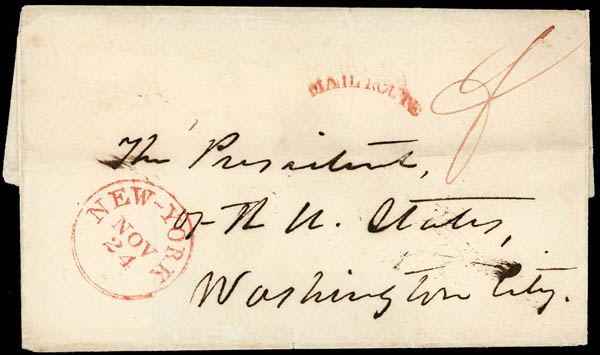 MAIL ROUTE
The President,
of the U. States,
Washington City.
NEW-YORK
NOV
24